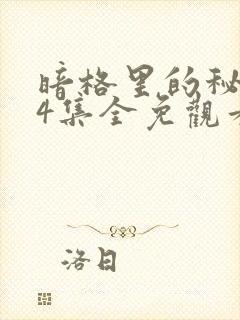 暗格里的秘
4集全免觀
洛日